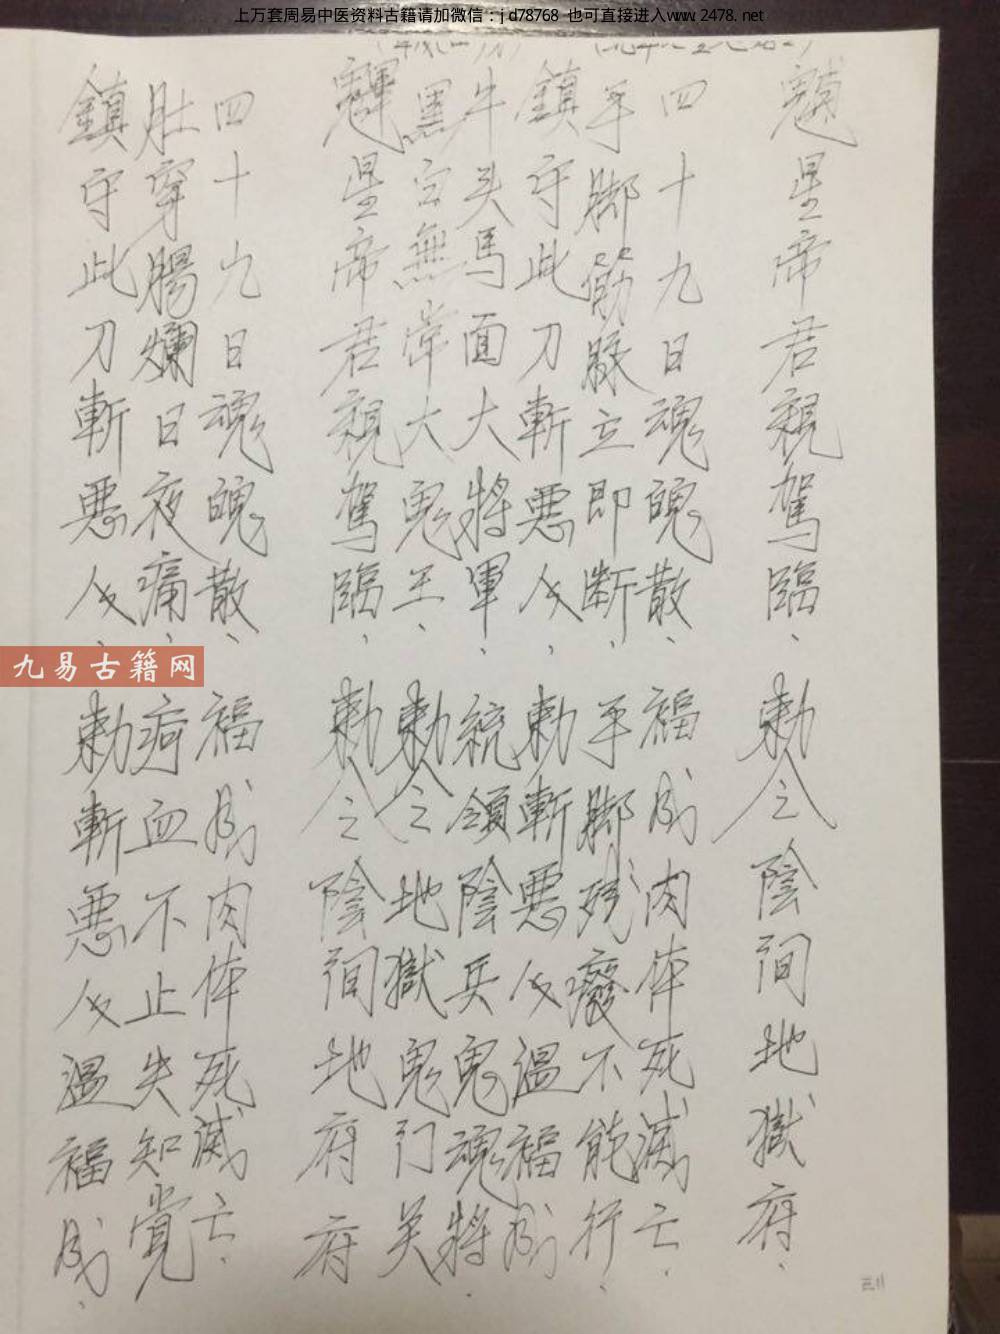 上万套周易中医资料古籍请加微信：jd78768 也可直接进入www.2478.net
星帝君親駕臨、勅令之陰间地獄府、
四十九日魂魄散、福成肉体死滅亡、
手脚筋脉立即断、手脚残癈不能行、
鎮守此刀斬惡人、勅斬惡人温福成、
牛头馬面大將軍、統領陰兵鬼魂將、
黑白無常大鬼王、勅令之地獄鬼门关
星帝君親駕臨、勅令之陰间地府府
四十九日魂魄散、福成肉体死滅亡、
肚穿腸爛日夜痛、疴血不止失知覚
鎮守此刀斬惡人、勅斬惡人温福成、
九易古籍网